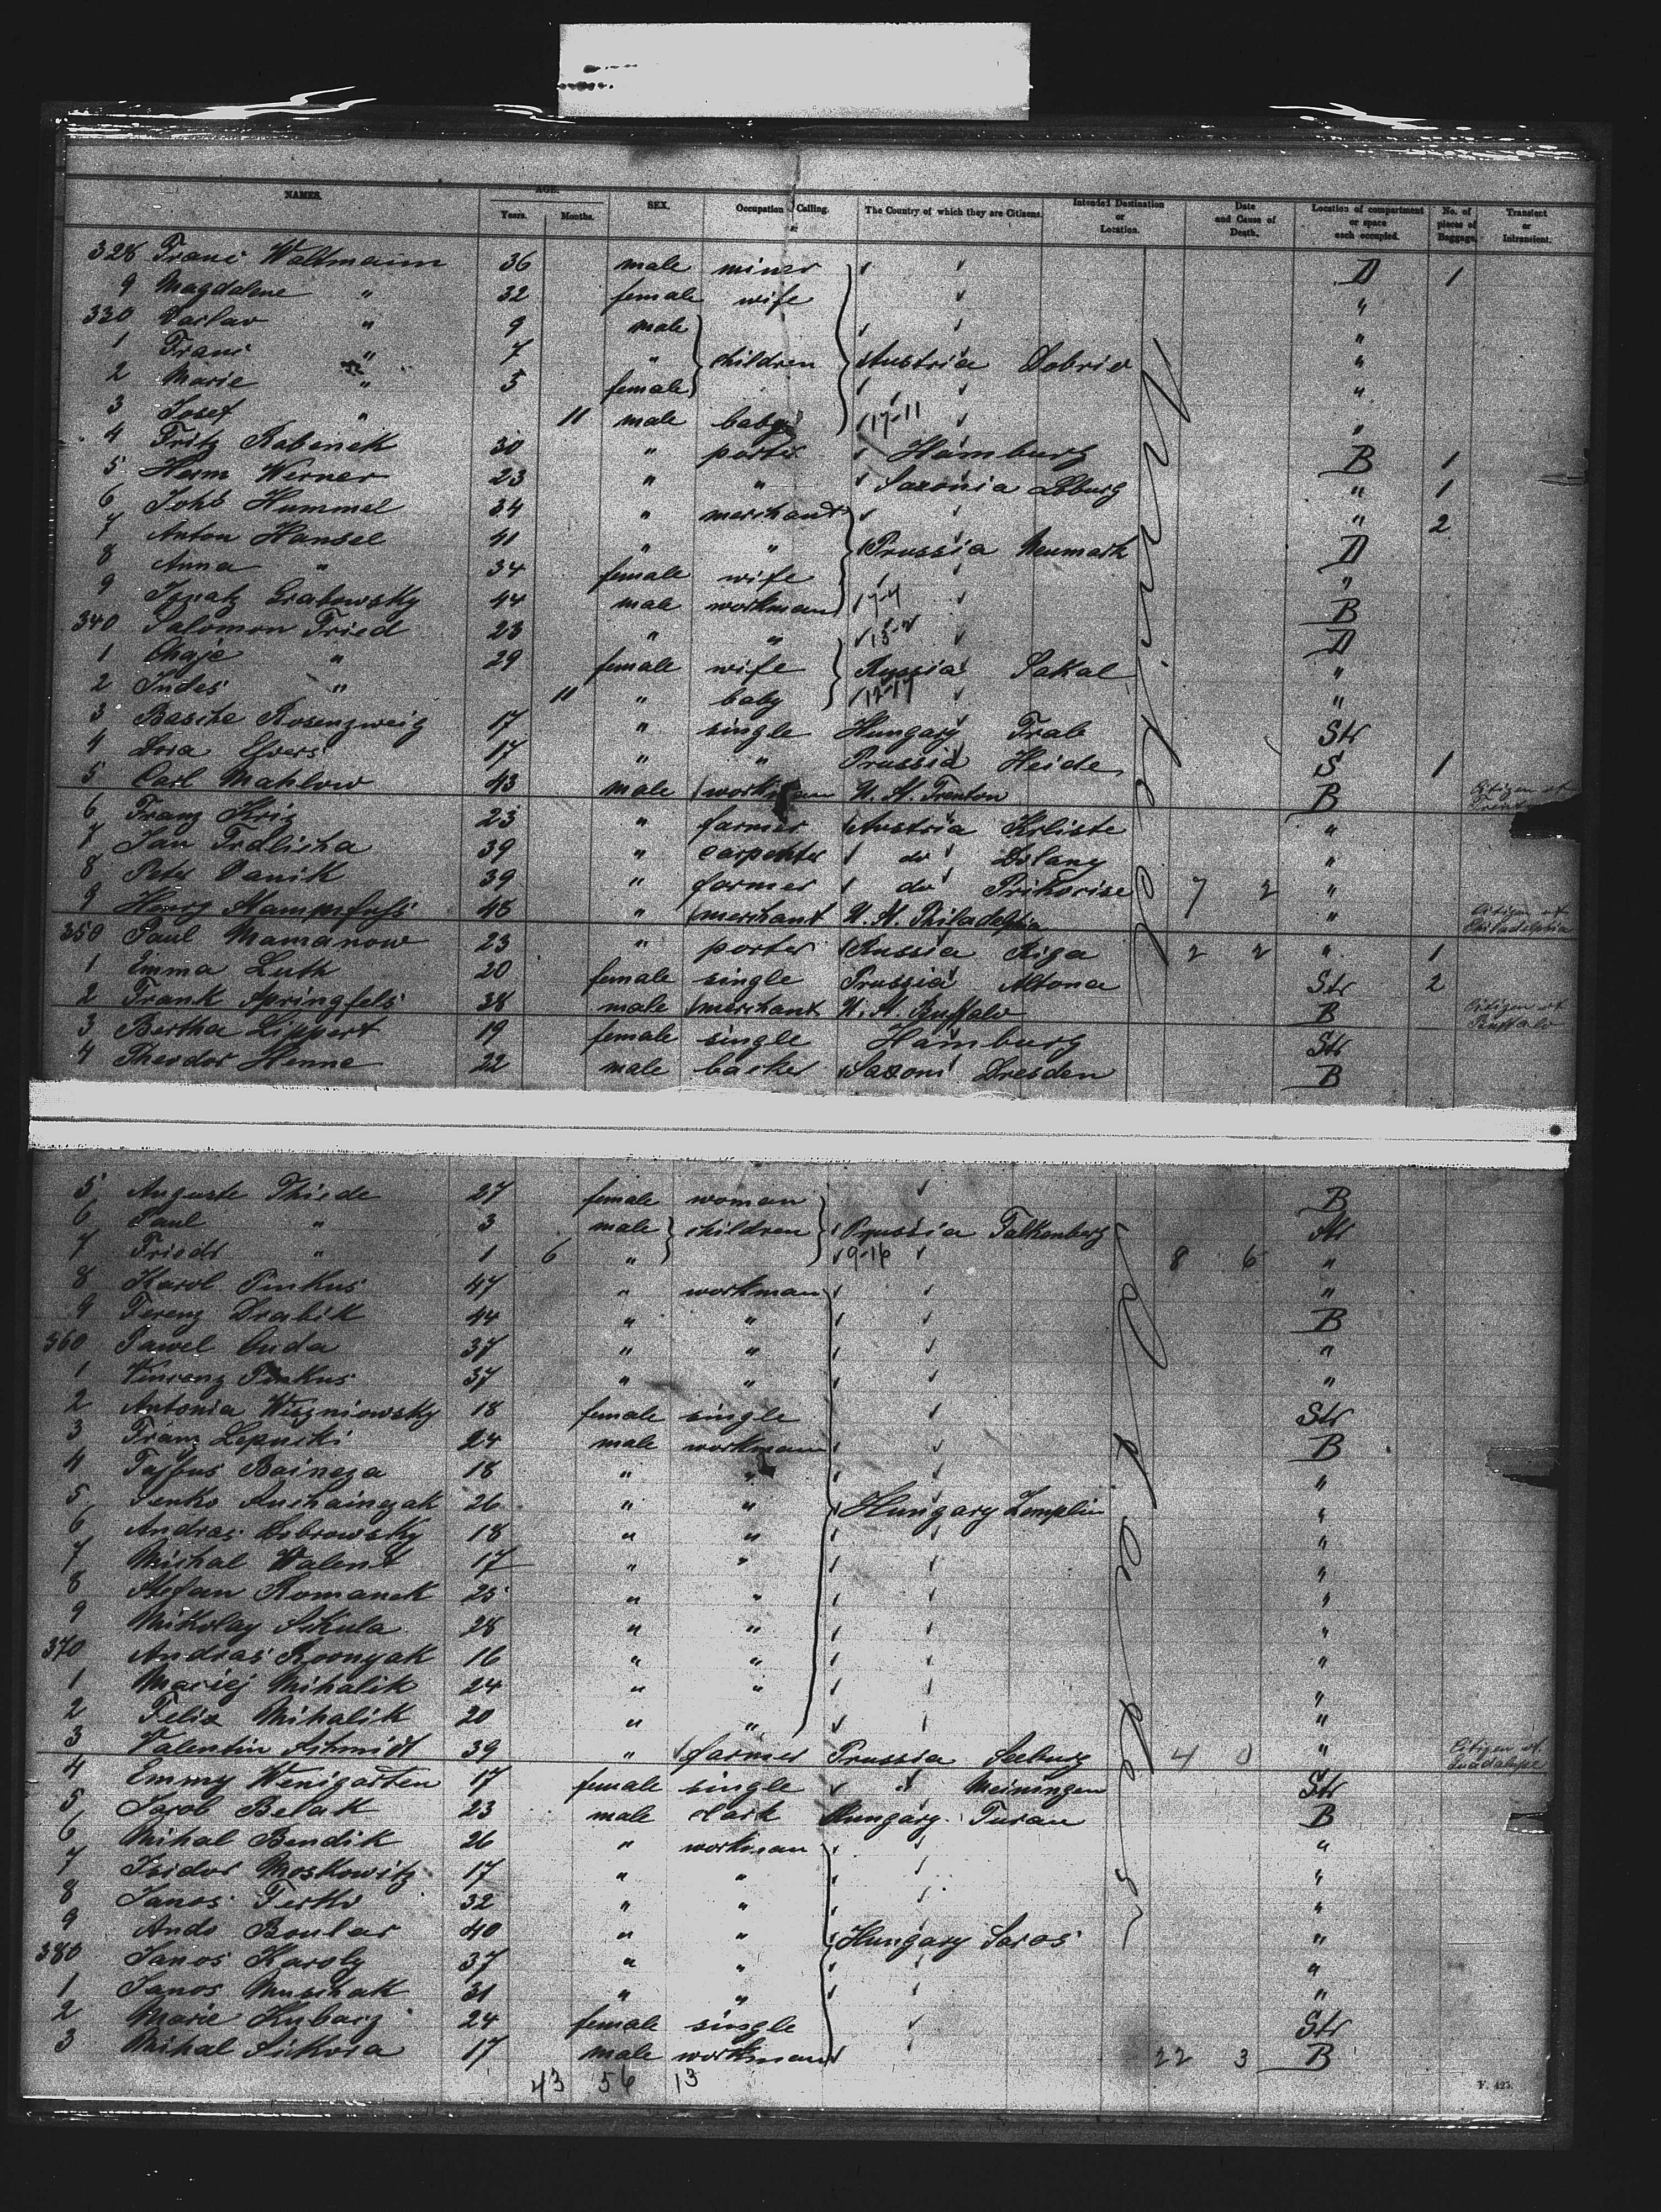 NAMES. AGE. Years. Months. SEX. Occupation Calling. The Country of which they are Citizens. Intended Destination or Location. Date and Cause of Death. Location of compartment or space each occupied. No. of pieces of Baggage. Transient or Intransient.
328 Franc Waltmann 36 male miner D 1
9 Magdalene " 32 female wife "
330 Vaclav " 9 male "
1 Franc " 7 " children Austria "
2 Marie " 5 female "
3 Josef " 11 male baby 17-11 "
4 Fritz Rabenek 30 " porter Hamburg B 1
5 Herm Werner 23 " " Saxonia " 1
6 Johs Hummel 34 " merchant " 2
7 Anton Hansel 41 " " Prussia Neumark D
8 Anna " 34 female wife "
9 Ignatz Grabowsky 44 male workman B
340 Salomon Fried 23 " " D
1 Chaje " 29 female wife Russia Sakal "
2 Judes " 11 " baby "
3 Basche Rosenzweig 17 " single Hungary Str
4 Dora 17 " " Prussia Heide S 1
5 Carl Mahlow 43 male workman U. St. Trenton B Citizen of
6 Franz Kriz 23 " farmer Austria "
7 Jan Trdlicka 39 " carpenter do Dolany "
8 Peter Vanik 39 " farmer do 7 2 "
9 45 " merchant U. St. Philadelphia " Citizen of Philadelphia
350 Paul Mamanow 23 " porter Russia Riga 2 2 " 1
1 Emma Luth 20 female single Prussia Altona Str 2
2 Frank Springfels 38 male merchant U. St. Buffalo B Citizen of Buffalo
3 Bertha Lippert 19 female single Hamburg Str
4 Theodor Henne 22 male backer Saxoni Dresden B
5 Auguste Thiede 27 female woman B
6 Paul " 3 male children Prussia Falkenberg Str
7 Friedr " 1 6 " 9-16 8 6 "
8 Karol Pinkus 47 " workman "
9 Ferenz Drabik 44 " " B
360 Pawel Cuda 37 " " "
1 Vincenz Pinkus 37 " " "
2 Antonia Wiszniowsky 18 female single Str
3 Franz Lepucki 24 male workman B
4 18 " " "
5 26 " " Hungary Zemplin "
6 Andras Dobrowsky 18 " " "
7 Michal Walent 17 " " "
8 Stefan Romanek 25 " " "
9 Mikolay Sikula 28 " " "
370 Andras Roonyak 16 " " "
1 Maciej Mihalik 24 " " "
2 Felix Mihalik 20 " " "
3 Valentin Schmidt 39 " farmer Prussia Seeburg 4 0 " Citizen of
4 Emmy Wenigarten 17 female single " Meiningen Str
5 Jacob Belak 23 male clark Hungary Turan B
6 Mihal Bendik 26 " workman "
7 Isidor Moskowitz 17 " " "
8 Janos Ferko 32 " " "
9 40 " " Hungary Saros "
380 Janos Karoly 37 " " "
1 Janos Muschak 31 " " "
2 Marie 24 female single Str
3 Mihal Sikora 17 male workman 22 3 B
43 56 13
F. 425.